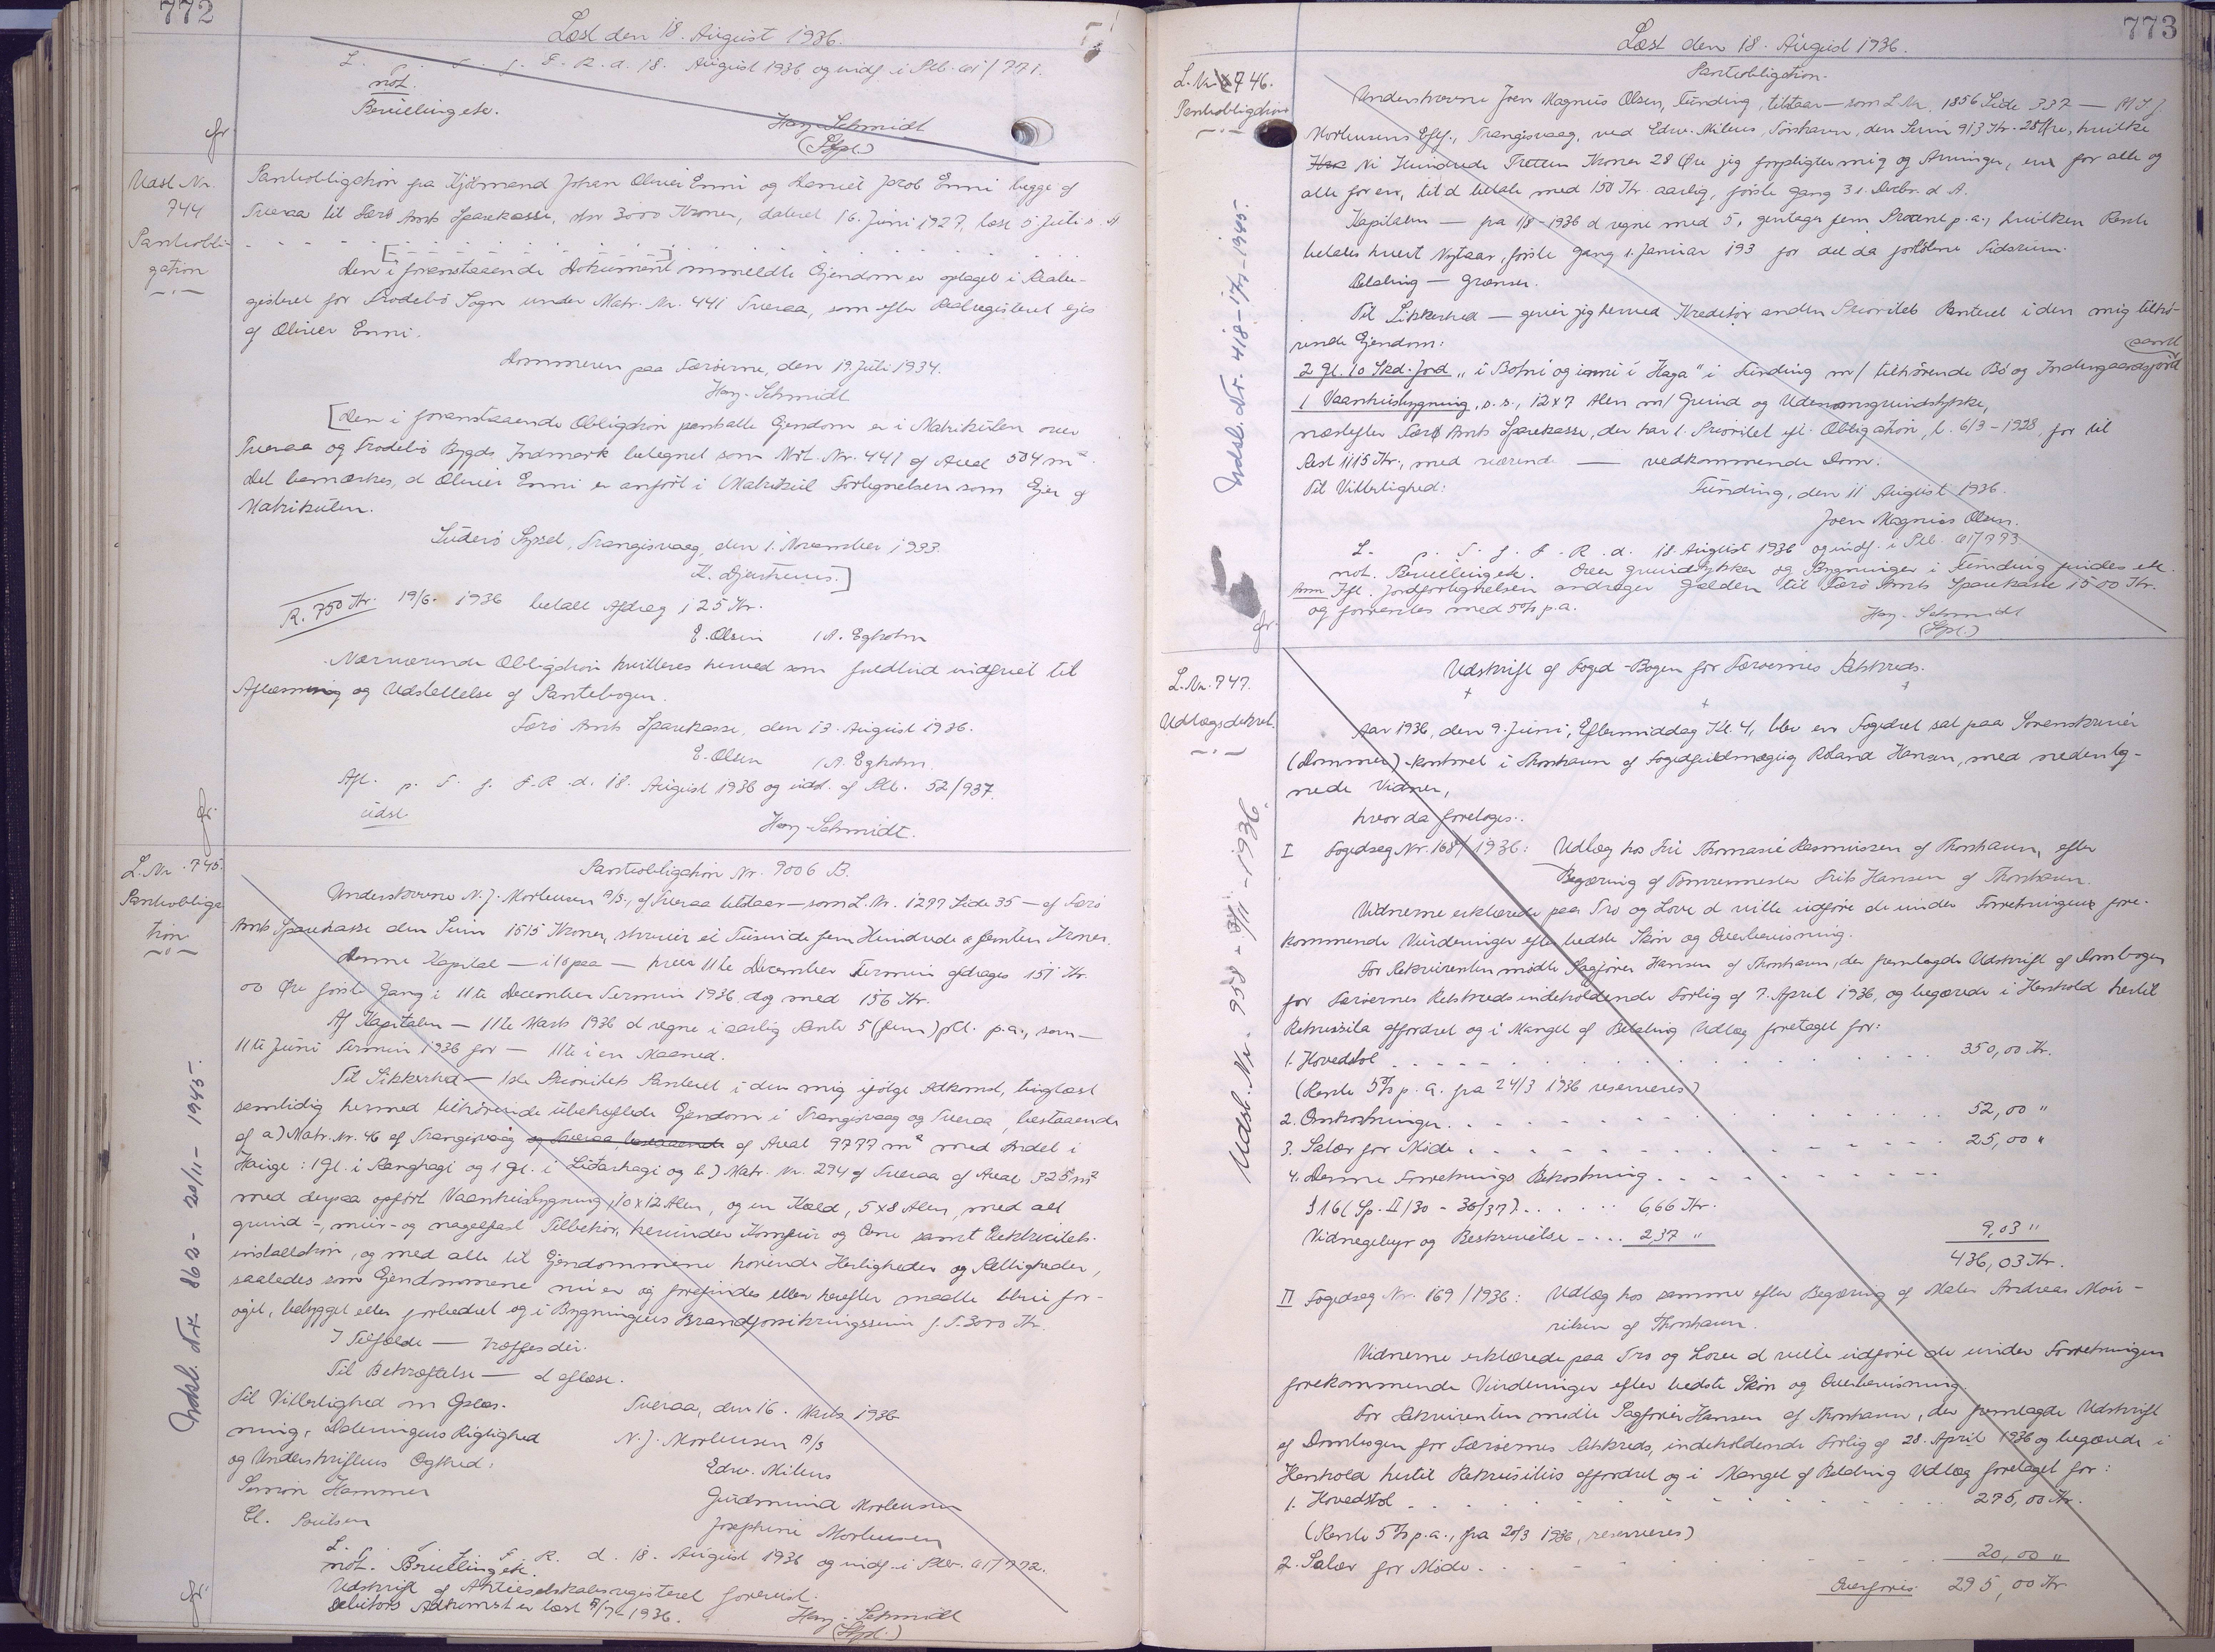 772
Læst den 18. August 1936.
L. S. f. F. R. d. 18. August 1936 og indf. i Ptb. 61/771.
not.
Bevillingek.
Hay-Schmidt
(Stpl.)
Udsl. Nr.
744
Pantobli-
gation
Pantobligation fra Kjøbmand Johan Olivur Enni og Daniel Jacob Enni begge af
Tveraa til Færø Amts Sparekasse, stor 3000 Kroner, dateret 16. Juni 1927, læst 5 Juli s. A
[Den i foranstaaende Dokument] ommeldte Ejendom er optaget i Realre-
gisteret for Frodebø Sogn under Matr. Nr. 441 Tveraa, som efter Realregisteret ejes
af Oliver Enni.
Dommeren paa Færøerne, den 19. Juli 1934.
Hay-Schmidt
[Den i foranstaaende Obligation pantsatte Ejendom er i Matrikulen over
Tveraa og Frodebø Bygds Indmark betegnet som Mrt. Nr. 441 af Areal 504 m².
Det bemærkes, at Olivur Enni er anført i Matrikul Fortegnelsen som Ejer af
Matrikulen.
Suderø Syssel, Trangisvaag, den 1. November 1933.
K. Djurhuus.]
R. 750 Kr. 19/6. 1936 betalt Afdrag 125 Kr.
E. Olsen / A. Egholm
Nærværende Obligation kvitteres herved som fuldtud indfriet til
Aflæsning og Udslettelse af Pantebogen.
Færø Amts Sparekasse, den 13. August 1936.
E. Olsen / A. Egholm.
Afl. p. T. f. F. R. d. 18. August 1936 og udsl. af Ptb. 52/937.
udsl
Hay-Schmidt.
L. Nr. 745.
Pantobliga
tion
Udsl. Nr. 863 - 20/11 - 1945.
Pantobligation Nr. 9006 B.
Underskrevne N. J. Mortensen A/S., af Tveraa tilstaar — som L. Nr. 1277 Side 35 — af Færø
Amts Sparekasse den Sum 1515 Kroner, skriver et Tusinde fem Hundrede & femten Kroner.
Denne Kapital — i 10 paa — hver 11te December Termin afdrages 151 Kr.
00 Øre første Gang i 11te December Termin 1936 dog med 156 Kr.
Af Kapitalen — 11te Marts 1936 at regne i aarlig Rente 5 (fem) pCt. p.a., som —
11te Juni Termin 1936 for — 11te i en Maaned.
Til Sikkerhed — 1ste Prioritets Panteret i den mig ifølge Adkomst, tinglæst
samtidig hermed tilhørende ubehæftede Ejendom i Trangisvaag og Tveraa, bestaaende
af a) Matr. Nr. 46 af Trangisvaag og Tveraa, bestaaende af Areal 9777 m² med Andel i
Hauge: 1 Gl. i Ranghagi og 1 Gl. i Lidarhagi og b) Matr. Nr. 294 af Tveraa af Areal 325 m²
med derpaa opført Vaanhusbygning, 10 x 12 Alen, og en Kæld, 5 x 8 Alen, med alt
grund-, mur- og nagelfast Tilbehør, herunder Komfur og Ovne samt Elektricitets-
installation, og med alle til Ejendommene hørende Herligheder og Rettigheder,
saaledes som Ejendommene nu er og forefindes eller herefter maatte blive for-
øget, bebygget eller forbedret og i Bygningens Brandforsikringssum f. T. 3000 Kr.
I Tilfælde — træffes der.
Til Bekræftelse — at aflæse.
Til Vitterlighed om Oplæs-
ning, Dateringens Rigtighed
og Underskriftens Ægthed:
Simon Hammer
Cl. Poulsen
Tveraa, den 16. Marts 1936
N. J. Mortensen A/S
Edw. Mitens
Gudmund Mortensen
Josephine Mortensen
L. S. f. F. R. d. 18. August 1936 og indf. i Ptb. 61/772.
not. Bevillingek.
Udskrift af Aktieselskabsregisteret forevist.
Debitors Adkomst er læst 8/7-1936.
Hay-Schmidt
(Stpl.)
773
Læst den 18. August 1936.
L. Nr. 746.
Pantobligation
Udsl. Nr. 418 - 17/7 - 1945.
Pantobligation.
Underskrevne Joen Magnus Olsen, Funding, tilstaar — som L. Nr. 1856 Side 337 — N. J.
Mortensens Eftf., Trangisvaag, ved Edw. Mitens, Torshavn, den Sum 913 Kr. 28 Øre, hvilke
Ni Hundrede Tretten Kroner 28 Øre jeg forpligter mig og Arvinger, en for alle og
alle for en, til at betale med 150 Kr. aarlig, første Gang 31. Decbr. d. A.
Kapitalen — fra 1/8-1936 at regne med 5, gentager fem, Procent p.a., hvilken Rente
betales hvert Nytaar, første Gang 1. Januar 193 for det da forløbne Tidsrum.
Betaling — Grænser.
Til Sikkerhed — giver jeg herved Kreditor anden Prioritets Panteret i den mig tilhø-
rende Ejendom:
2 Gl. 10 Skd. Jord „i Botni og inni i Haga" i Funding m/ tilhørende Bø og Indengaardsjord samt
1 Vaanhusbygning, s. s., 12 x 7 Alen m/ Grund og Udenomsgrundstykke,
næstefter Færø Amts Sparekasse, der har 1. Prioritet efl. Obligation, l. 6/3-1928, for til
Rest 1115 Kr., med nærende — vedkommende Dom.
Til Vitterlighed:
Funding, den 11 August 1936.
Joen Magnus Olsen.
L. S. f. F. R. d. 18. August 1936 og indf. i Ptb. 61/773
not. Bevillingek. Over Grundstykker og Bygninger i Funding findes ek.
Anm Ifl. Jordfortegnelsen andrager Gælden til Færø Amts Sparekasse 1500 Kr.
og forrentes med 5% p.a.
Hay-Schmidt
(Stpl.)
L. Nr. 747.
Udlægsdekret.
Udsl. Nr. 953 - 3/11 - 1936.
Udskrift af Foged-Bogen for Færøernes Retskreds.
Aar 1936, den 9. Juni, Eftermiddag Kl. 4, blev en Fogedret sat paa Sorenskriver
(Dommer)-kontoret i Thorshavn af Fogedfuldmægtig Roland Hansen, med nedenteg-
nede Vidner,
hvor da foretoges:
I Fogedsag Nr. 168/1936: Udlæg hos Fru Thomasie Rasmussen af Thorshavn, efter
Begæring af Tømrermester Frits Hansen af Thorshavn.
Vidnerne erklærede paa Tro og Love at ville udføre de under Forretningen fore-
kommende Vurderinger efter bedste Skøn og Overbevisning.
For Rekvirenten mødte Sagfører Hansen af Thorshavn, der fremlagde Udskrift af Dombogen
for Færøernes Retskreds indeholdende Forlig af 7. April 1936, og begærede i Henhold hertil
Rekvisita affordret og i Mangel af Betaling Udlæg foretaget for:
1. Hovedstol . . . . 350,00 Kr.
(Rente 5% p. a. fra 24/3 1936 reserveres)
2. Omkostninger . . . . 52,00 "
3. Salær for Møde . . . . 25,00 "
4. Denne Forretnings Bekostning . . . .
§ 16 (Sp. II/30 - 36/37) . . . . 6,66 Kr.
Vidnegebyr og Beskrivelse . . . . 2,37 " 9,03 "
436,03 Kr.
II Fogedsag Nr. 169/1936: Udlæg hos samme efter Begæring af Maler Andreas Mou-
ritsen af Thorshavn.
Vidnerne erklærede paa Tro og Love at ville udføre de under Forretningen
forekommende Vurderinger efter bedste Skøn og Overbevisning.
For Rekvirenten mødte Sagfører Hansen af Thorshavn, der fremlagde Udskrift
af Dombogen for Færøernes Retskreds, indeholdende Forlig af 28. April 1936 og begærede i
Henhold hertil Rekvisitus affordret og i Mangel af Betaling Udlæg foretaget for:
1. Hovedstol . . . . 275,00 Kr.
(Rente 5% p.a., fra 20/3 1936, reserveres)
2. Salær for Møde . . . . 20,00 "
Overføres 295,00 Kr